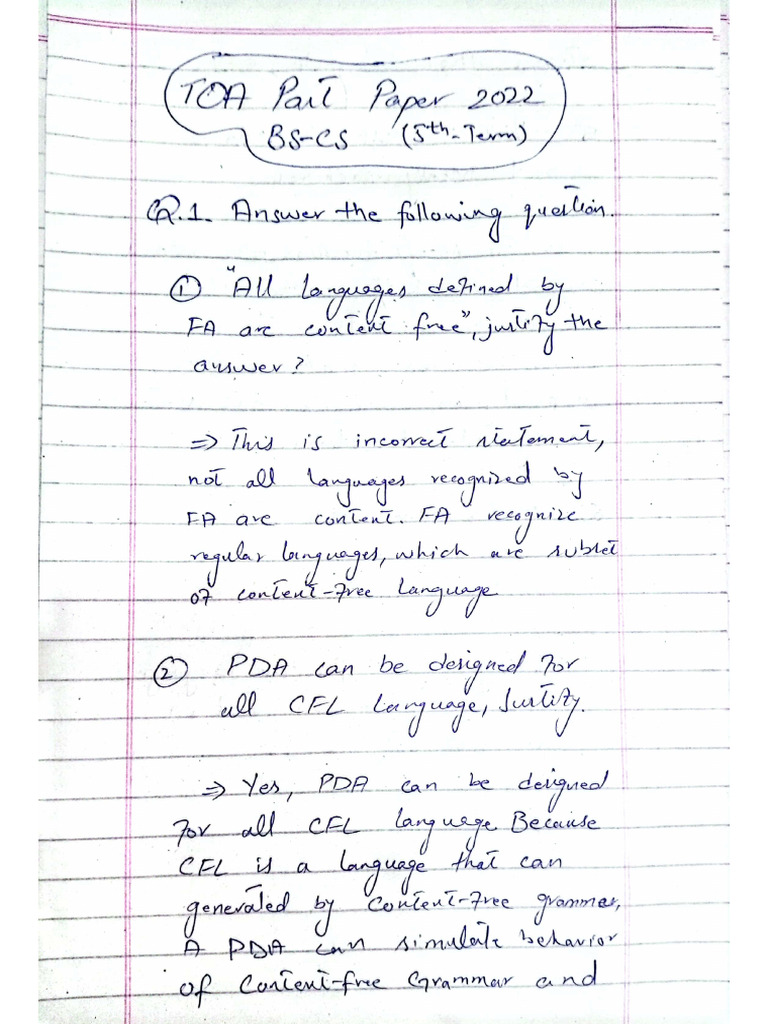 TOA Past Paper 2022
BS-CS (5th-Term)
Q.1. Answer the following question.
① "All languages defined by
FA are content free", justify the
answer?
⇒ This is incorrect statement,
not all languages recognized by
FA are content. FA recognize
regular languages, which are subset
of content-free Language
② PDA can be designed for
all CFL Language, Justify.
⇒ Yes, PDA can be designed
for all CFL language Because
CFL is a language that can
generated by content-free grammar,
A PDA can simulate behavior
of Content-free Grammar and